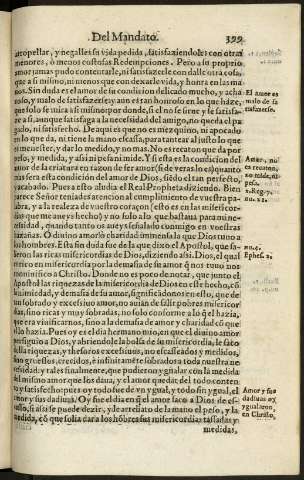 Del Mandato. 399
atropellar, y negalles su vida pedida, satisfaziendole con otras
menores, ò menos costosas Redempciones. Pero a su proprio
amor jamas pudo contentarle, ni satisfazerle con dalle otra cosa,
que a si mismo, ni menos que con dexarle vida, y honra en las ma
nos. Sin duda es el amor de su condicion delicado mucho, y acha
coso, y malo de satisfazerse; y aun es tan honroso en lo que haze,
que solo se unica a si mismo por donde, si el no se sirve y le satisfa-
ze a si, aunque satisfaga a la necessidad del amigo, no queda el pa
gado, ni satisfecho. De aqui es que no es mezquino, ni apocado
en lo que da, ni tiene la mano escasa, para tantear al justo lo que
es menester, y dar lo medido, y no mas. No es recaton que da por
peso, y medida, y assi ni pesa ni mide. Y si esta es la condicion del
amor de la criatura en razon de ser amor; si de veras lo es; quanto
mas sera esta condición del amor de Dios, solo el tan perfecto, y
acabado. Pues a esto aludia el Real Propheta diziendo. Bien
parece Señor teniades atencion al cumplimiento de vuestra pa-
labra, y a la realeza de vuestro coraçon
que me aueys hecho) y no solo a lo que bastaua para mi ne-
cessidad, quando tanto os aueys señalado conmigo en vuestras
hazañas. O diuino amor! o charidad immensa la que Dios tuuo a
los hombres. Esta sin duda fue de la que dixo el Apostol, que sa-
lieron las ricas misericordias de Dios, diziendo assi. Dios, el qual
es rico en misericordia por la demasia de su amor q̃ nos tuuo nos
conuiuifico a Christo. Donde no es poco de notar, que junto el
Apostol las riquezas de la misericordia de Dios en este hecho, cõ
la immensidad, y demasia de su amor, significandonos en esto, que de
tan sobrado y excessiuo amor, no auian de salir pobres misericor
dias, sino ricas y muy sobradas, no solo conforme a lo q̃ el hazia,
que era viuificarnos, sino a la demasia de amor y charidad cõ que
ello hazia. Pues oy es el dia hermano mio, en que el diuino amor
persiguio a Dios, y abriendole la bolsa de su misericordia, le saco
della riquezas, y thesoros excessiuos, no escasseados y medidos,
sino gruessos, crecidos, e infinitamente sobrados a toda nuestra ne
cessidad; y tales finalmente, que pudieron ygualar con la medida
del mismo amor que los daua, y el amor quedar del todo conten
to y satisfecho; pero oy todo fue de vn ygual, y todo sin ygual, el
amor y sus dadiuas. Oy fue el dia en q̃ el amor saco a Dios de es-
caso, si assi se puede dezir, y le arrebato de la mano el peso, y la
medida, cõ que solia dar a los hõbres sus misericordias tassadas y
medidas,
El amor es
malo de sa
tisfazerse.
Amor, no
es recaton,
no mide, ni
pesa.
2. Reg. 7.
nu. 21.
nu. 4.
Ephes. 2.
Amor y sus
dadiuas oy
ygualaron,
en Christo.